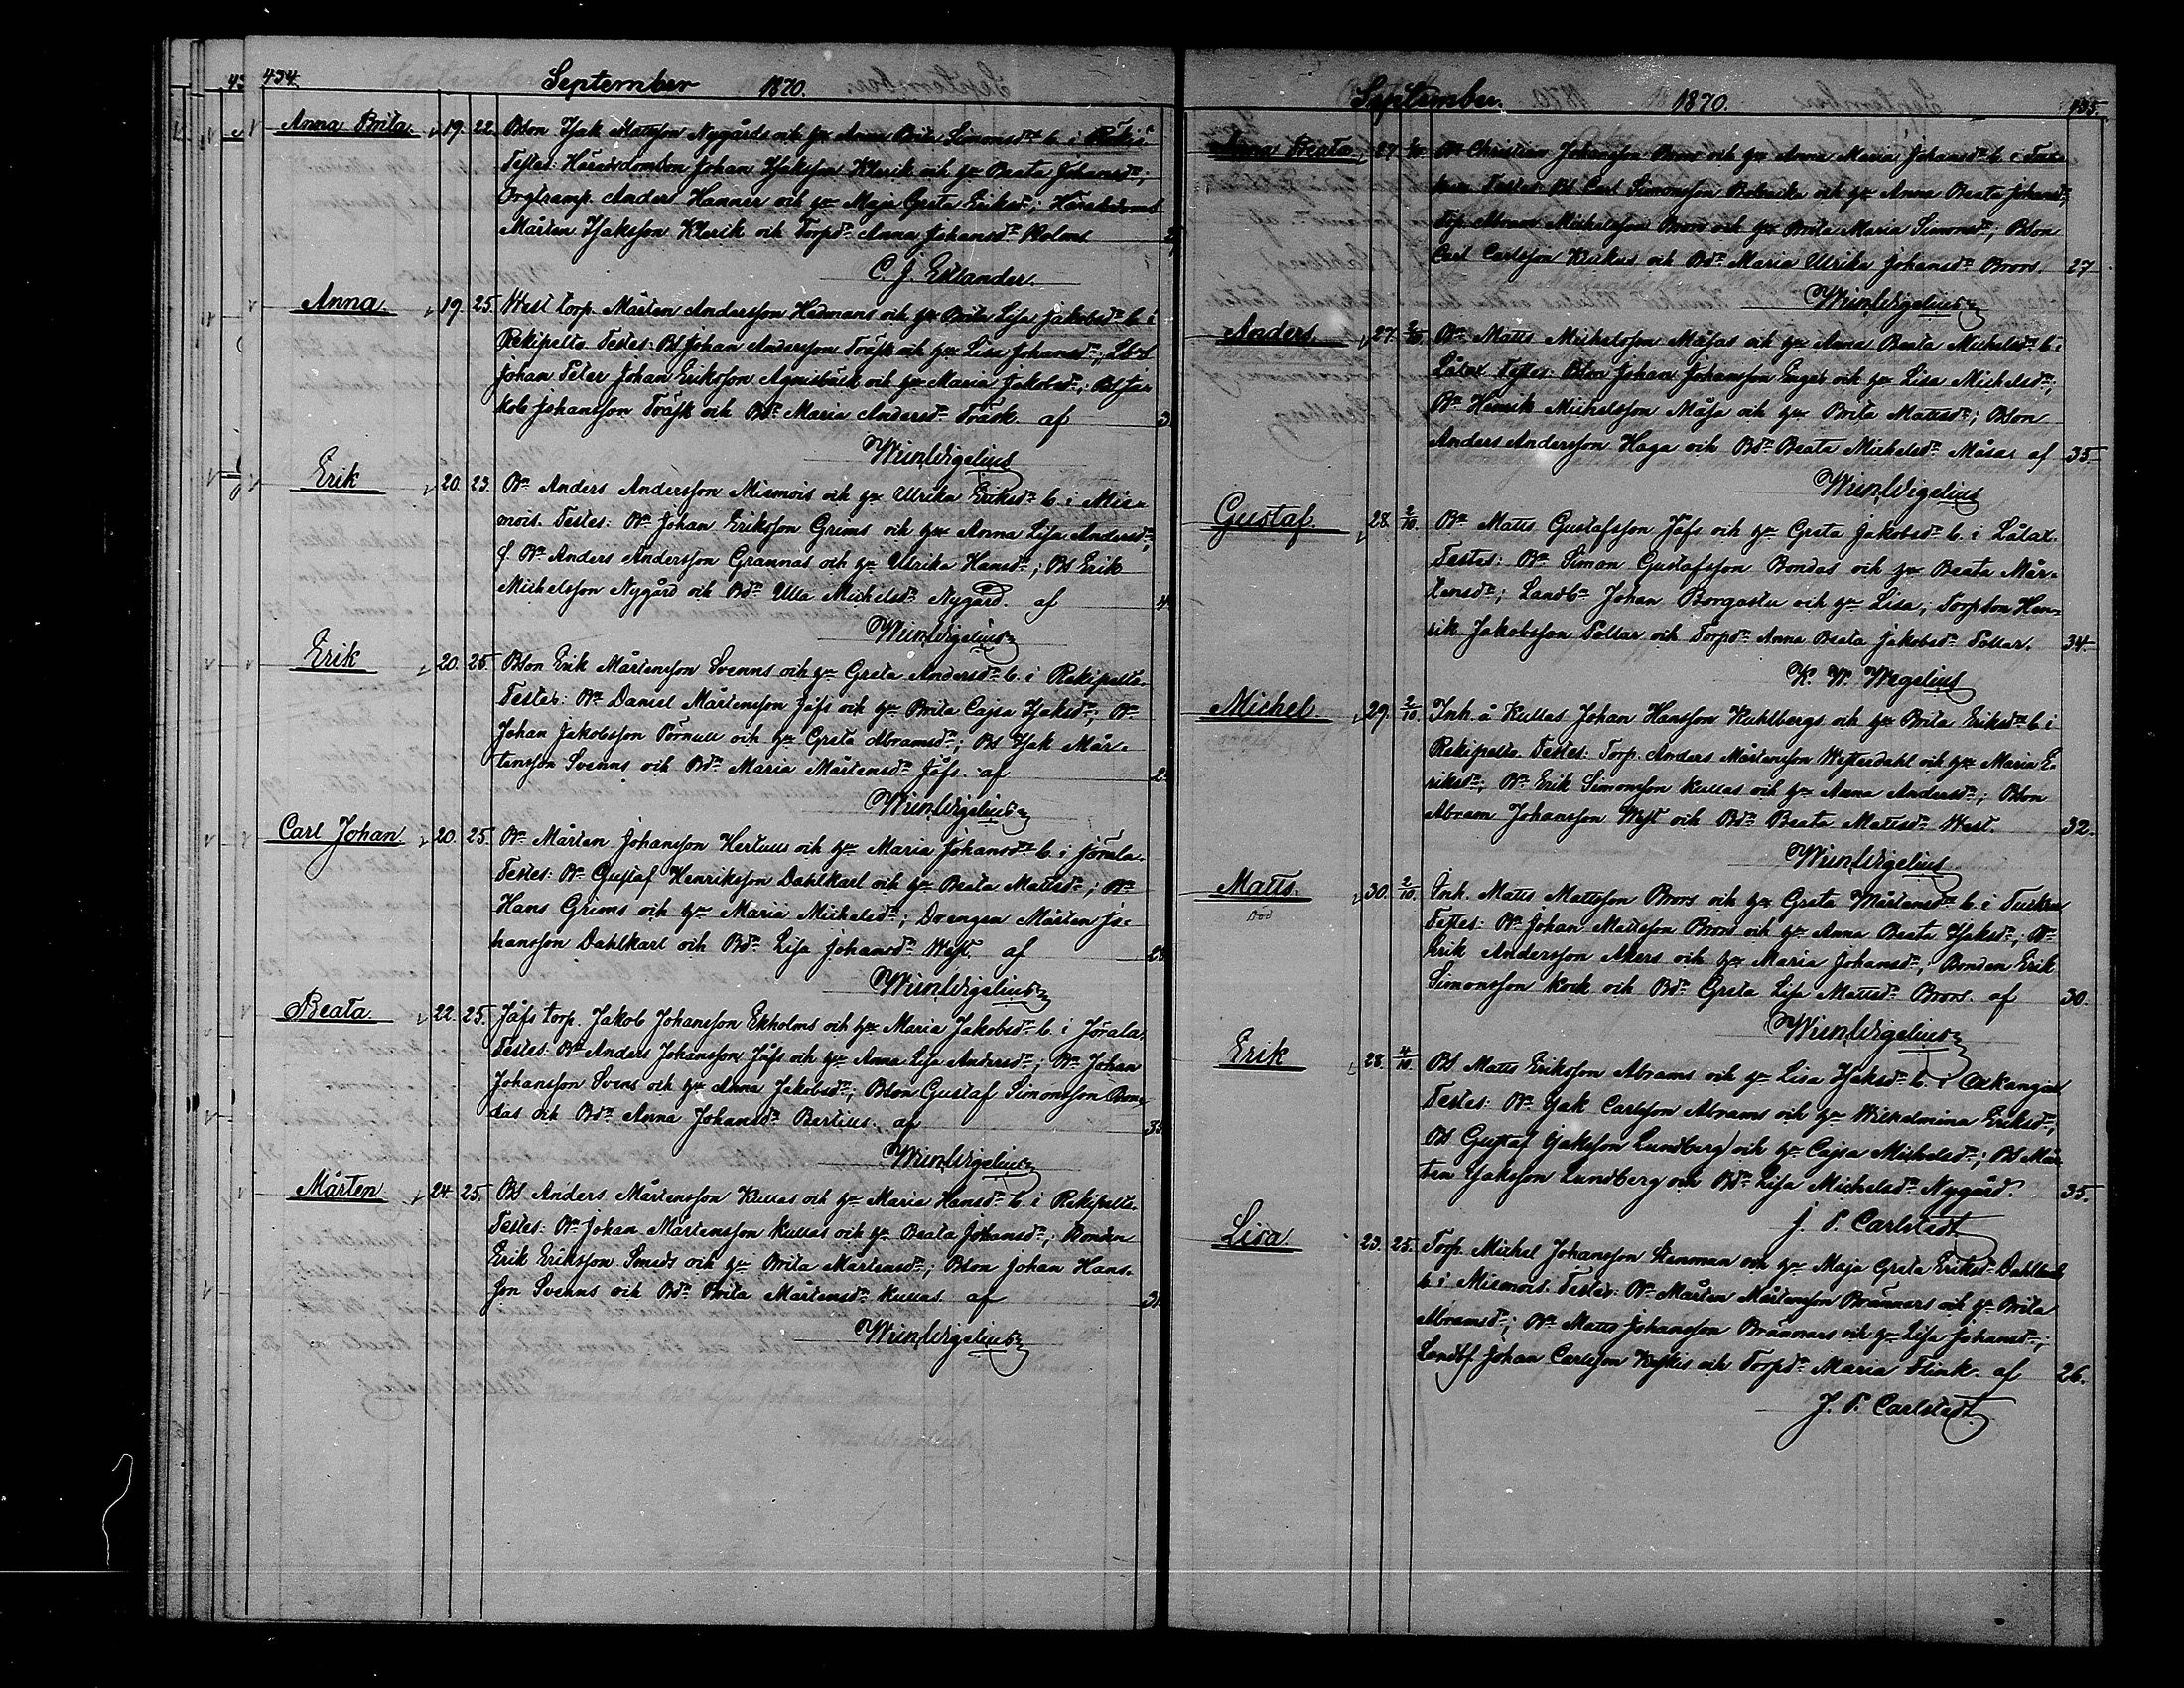 434.
September 1870.
Anna Brita. 19. 22. Bson Isak Mattsson Nygårds och hu Anna Brita Simonsdr b. i
Testes: Häradsdomson Johan Isaksson Klerik och hu Beata Johansdr;
Orgtramp. Anders Hanner och hu Maja Greta Eriksdr; Häradsdoms
Mårten Isaksson Klerik och Torpdr Anna Johansdr Holms
C. J. Estlander.
Anna. 19. 25. West torp. Mårten Andersson Hedmans och hu Brita Lisa Jakobsdr b. i
Rekipelto. Testes: Bd Johan Andersson Träsk och hu Lisa Johansdr;
Johan Peter Johan Eriksson Agnisbäck och hu Maria Jakobsdr; Bd Ja-
kob Johansson Träsk och Bdr Maria Andersdr Träsk. af 3
Wilh Wegelius
Erik 20. 23. Bn Anders Andersson Mismois och hu Ulrika Eriksdr b. i Mis-
mois. Testes: Bn Johan Eriksson Grims och hu Anna Lisa Andersdr;
f. Bn Anders Andersson Grannas och hu Ulrika Hansdr; Bd Erik
Michelsson Nygård och Bdr Ulla Michelsdr Nygård. af 4
Wilh Wegelius
Erik 20. 25. Bson Erik Mårtensson Svenns och hu Greta Andersdr b. i Rekipelto.
Testes: Bn Daniel Mårtensson Jåfs och hu Brita Cajsa Isaksdr; Bn
Johan Jakobsson Pörnull och hu Greta Abramsdr; Bd Isak Mår-
tensson Svenns och Bdr Maria Mårtensdr Jåfs. af 2
Wilh Wegelius
Carl Johan 20. 25. Bn Mårten Johansson Hertuas och hu Maria Johansdr b. i Jörala.
Testes: Bn Gustaf Henriksson Dahlkarl och hu Beata Mattsdr; Bn
Hans Grims och hu Maria Michelsdr; Drengen Mårten Jo-
hansson Dahlkarl och Bdr Lisa Johansdr West. af 2
Wilh Wegelius
Beata. 22. 25. Jåfs torp. Jakob Johansson Ekholms och hu Maria Jakobsdr b. i Jörala.
Testes: Bn Anders Johansson Jåfs och hu Anna Lisa Andersdr; Bn Johan
Johansson Svens och hu Anna Jakobsdr; Bson Gustaf Simonsson Bon-
das och Bdr Anna Johansdr Bertius. af 3
Wilh Wegelius
Mårten 24. 25. Bd Anders Mårtensson Kullas och hu Maria Hansdr b. i Rekipelto.
Testes: Bn Johan Mårtensson Kullas och hu Beata Johansdr; Bonden
Erik Eriksson Smeds och hu Brita Mårtensdr; Bson Johan Hans-
son Svenns och Bdr Brita Mårtensdr Kullas. af 3
Wilh Wegelius
September. 1870. 435.
Anna Beata. 27. Bn Christian Johansson Brors och hu Anna Maria Johansdr b. i
Testes: Bd Carl Simonsson och hu Anna Beata Johansdr;
Torp. Abram Michelsson Brors och hu Brita Maria Simonsdr; Bson
Carl Carlsson och Bdr Maria Ulrika Johansdr Brors. 27
Wilh Wegelius
Anders. 27. 2/10. Bn Matts Michelsson Måsas och hu Anna Beata Michelsdr b. i
Lålax. Testes: Bson Johan Johansson Engels och hu Lisa Michelsdr;
Bn Henrik Michelsson Måsa och hu Brita Mattsdr; Bson
Anders Andersson Haga och Bdr Beata Michelsdr Måsas af 35.
Wilh Wegelius
Gustaf. 28. 2/10. Bn Matts Gustafsson Jåfs och hu Greta Jakobsdr b. i Lålax.
Testes: Bn Simon Gustafsson Bondas och hu Beata Mår-
tensdr; Landb. Johan Borgastu och hu Lisa; Torpson Hen-
rik Jakobsson Tollar och Torpdr Anna Beata Jakobsdr Tollar. 34
K. W. Wegelius
Michel. 29. 2/10. Inh. å Kullas Johan Hansson Kuhlbergs och hu Brita Eriksdr b. i
Rekipelto. Testes: Torp. Anders Mårtensson Westerdahl och hu Maria E-
riksdr; Bn Erik Simonsson Kullas och hu Anna Andersdr; Bson
Abram Johansson West och Bdr Beata Mattsdr West. 32.
Wilh Wegelius
Matts. 30. 2/10. Inh. Matts Mattsson Brors och hu Greta Mårtensdr b. i Tuckur
Död
Testes: Bn Johan Mattsson Brors och hu Anna Beata Isaksdr; Bn
Erik Andersson Akers och hu Maria Johansdr; Bonden Erik
Simonsson Kock och Bdr Greta Lisa Mattsdr Brors. af 30.
Wilh Wegelius
Erik 28. 4/10. Bd Matts Eriksson Abrams och hu Lisa Isaksdr b. i Arkangar
Testes: Bn Isak Carlsson Abrams och hu Wilhelmina Eriksdr;
Bd Gustaf Isaksson Lundberg och hu Cajsa Michelsdr; Bd Mår-
ten Isaksson Lundberg och Bdr Lisa Michelsdr Nygård. 35.
J. P. Carlstedt
Lisa 23. 25. Torp. Michel Johansson Stenman och hu Maja Greta Eriksdr Dahlback
b. i Mismois. Testes: Bn Mårten Mårtensson Brännars och hu Brita
Abramsdr; Bn Matts Johansson Brännars och hu Lisa Johansdr;
Landbf. Johan Carlsson Keskis och Torpdr Maria Flink. af 26.
J. P. Carlstedt.